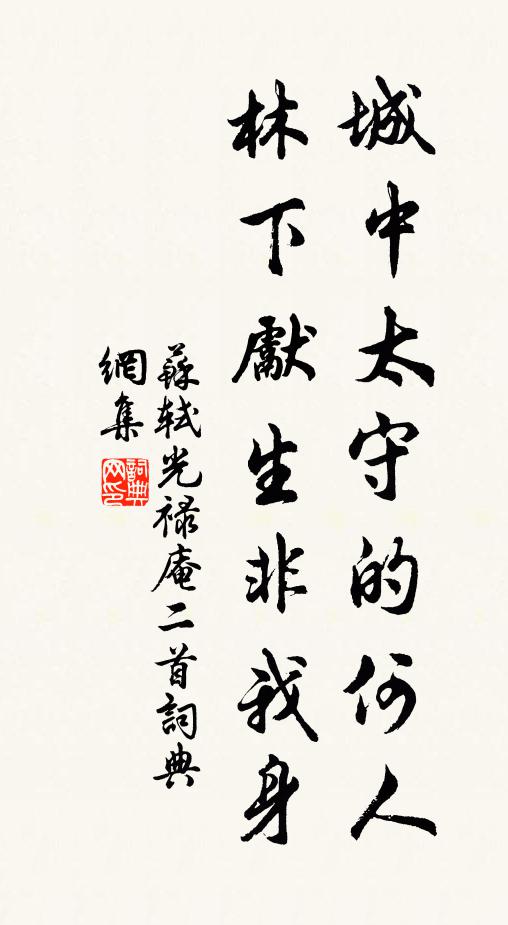 城中太守的何人
林下獻生非我身
蘇軾光祿庵二首詞典
網集
詞典
网印